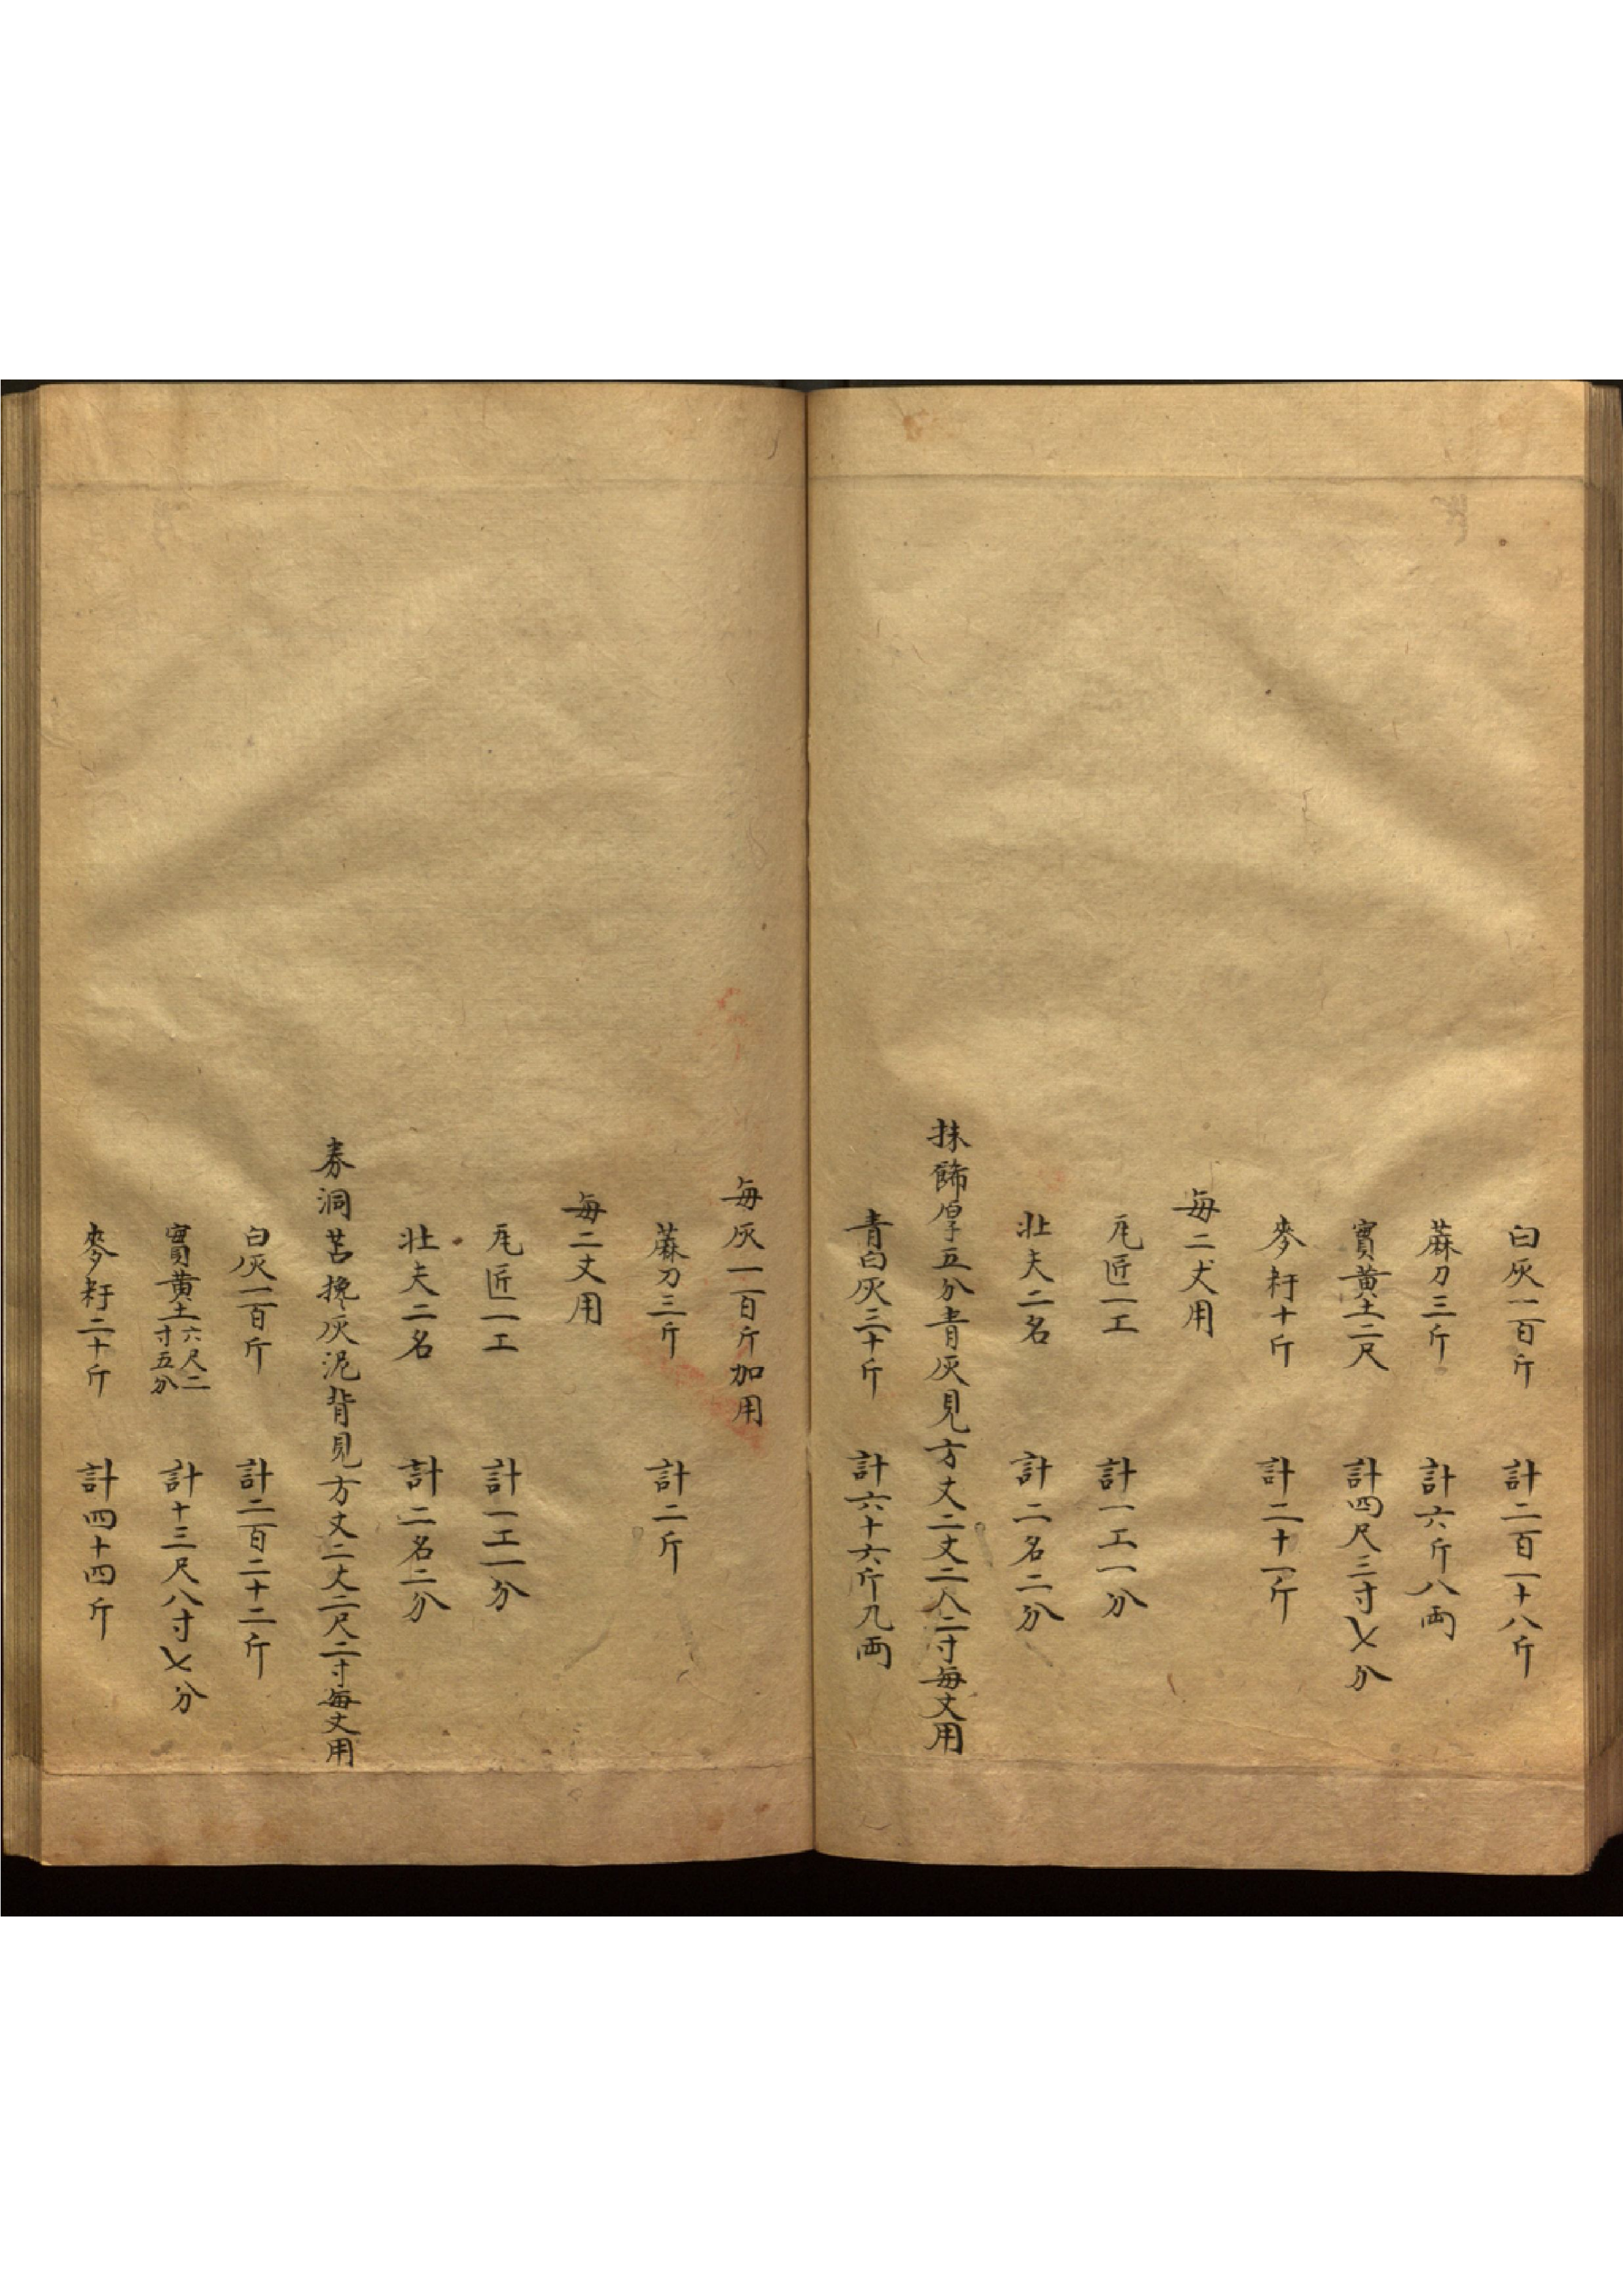 白灰一百斤 計二百一十八斤
蔴刀三斤 計六斤八両
實黄土二尺 計四尺三寸七分
麥籽十斤 計二十一斤
每二丈用
瓦匠一工 計一工一分
壯夫二名 計二名二分
抹餙厚五分青灰見方丈二丈二尺二寸每丈用
青白灰三十斤 計六十六斤九両
每灰一百斤加用
蔴刀三斤 計二斤
每二丈用
瓦匠一工 計一工一分
壯夫二名 計二名二分
券洞苫攙灰泥背見方丈二丈二尺二寸每丈用
白灰一百斤 計二百二十二斤
實黄土六尺二寸五分 計十三尺八寸七分
麥籽二十斤 計四十四斤